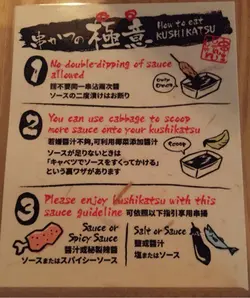 串かつの極意
How to eat
KUSHIKATSU
1 No double-dipping of sauce
allowed
ソースの二度漬けはお断り
Only
Once
2 You can use cabbage to scoop
more sauce onto your kushikatsu
若嫌醬汁不夠,可利用椰菜添加醬汁
ソースが足りないときは
「キャベツでソースをすくってかける」
という裏ワザがあります
Scoop
3 Please enjoy kushikatsu with this
sauce guideline 可依照以下指引享用串揚
Sauce or
Spicy Sauce
醬汁或秘製辣醬
ソースまたはスパイシーソース
Salt or Sauce
鹽或醬汁
塩またはソース